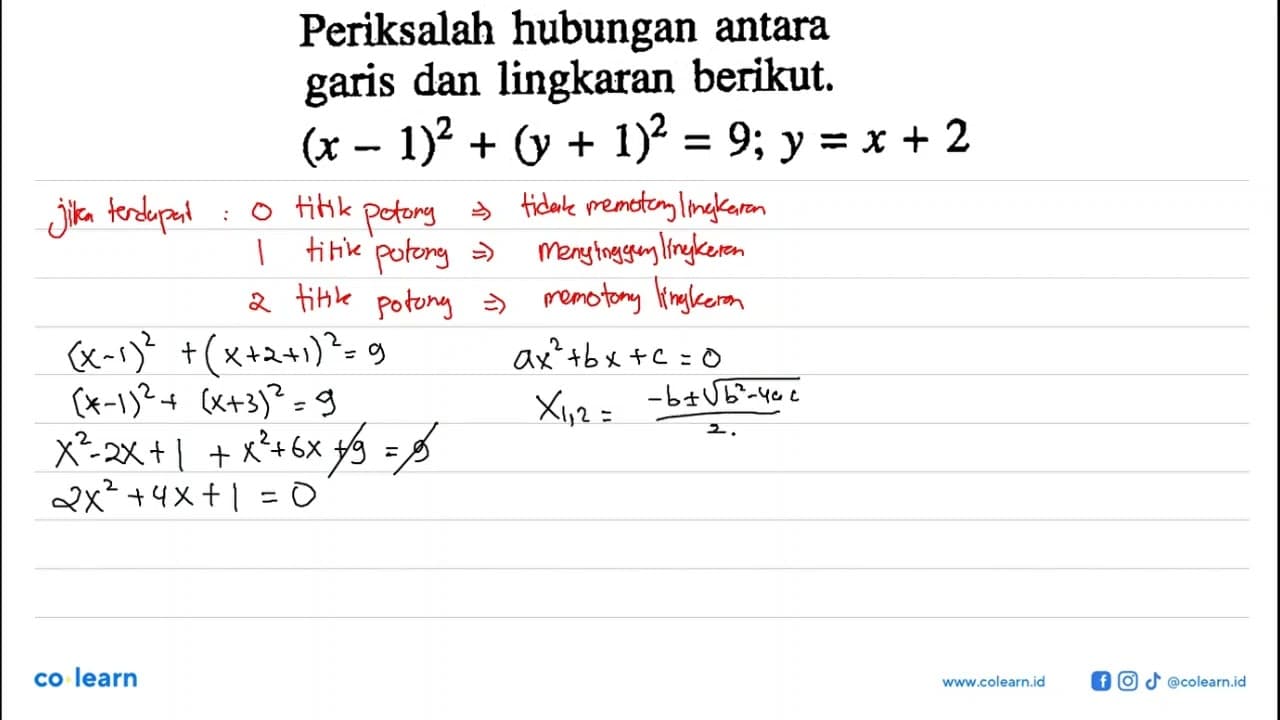 Periksalah hubungan antara
garis dan lingkaran berikut.
(x − 1)² + (y + 1)² = 9; y = x + 2
jika terdapat : 0 titik potong ⇒ tidak memotong lingkaran
1 titik potong ⇒ menyinggung lingkaran
2 titik potong ⇒ memotong lingkaran
(x-1)² + (x+2+1)² = 9
(x-1)² + (x+3)² = 9
x²-2x+1 + x²+6x +9 = 9
2x²+4x+1 = 0
ax²+bx+c = 0
x₁,₂ = (-b±√b²-4ac)/2.
co learn
www.colearn.id
@colearn.id